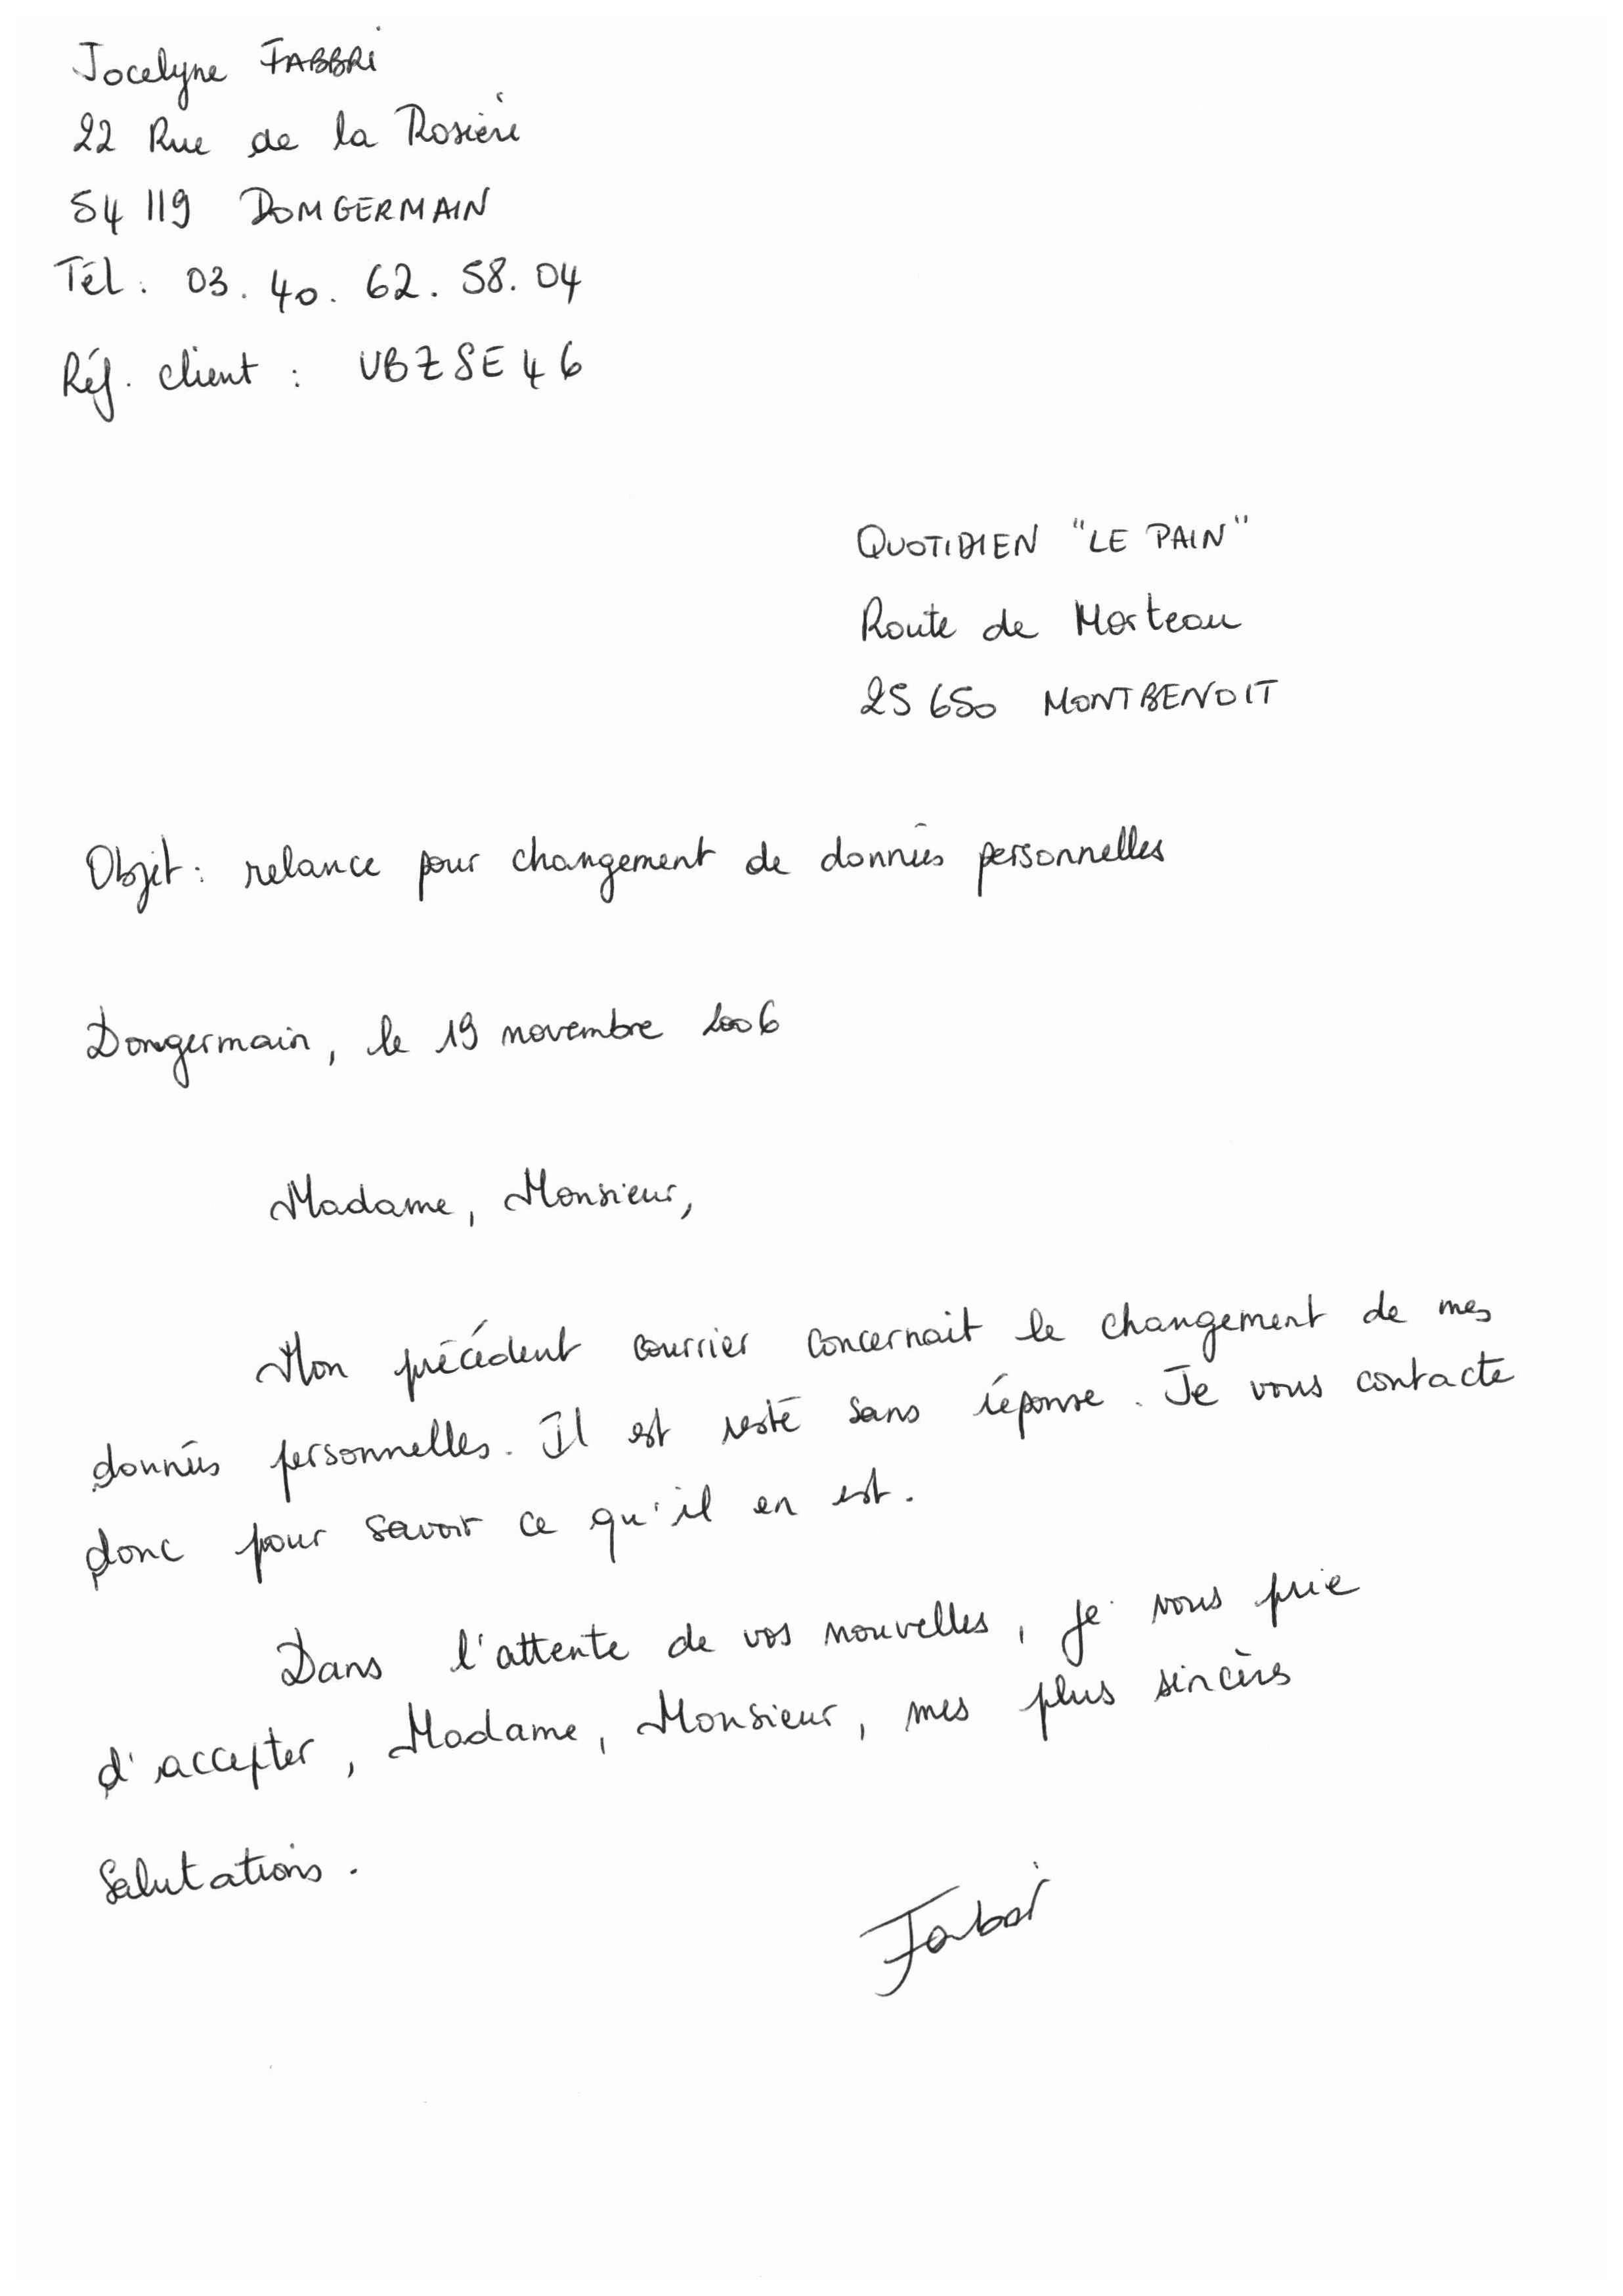 Jocelyne FABBRI
22 Rue de la Rosière
54 119 DOMGERMAIN
Tél. 03. 40. 62. 58. 04
Réf. client : VBZSE46
QUOTIDIEN "LE PAIN"
Route de Morteau
25 650 MONTBENOIT
Objet : relance pour changement de données personnelles
Domgermain, le 19 novembre 2006
Madame, Monsieur,
Mon précédent courrier concernait le changement de mes
données personnelles. Il est resté sans réponse. Je vous contacte
donc pour savoir ce qu'il en est.
Dans l'attente de vos nouvelles, je vous prie
d'accepter, Madame, Monsieur, mes plus sincères
Salutations.
Fabbri